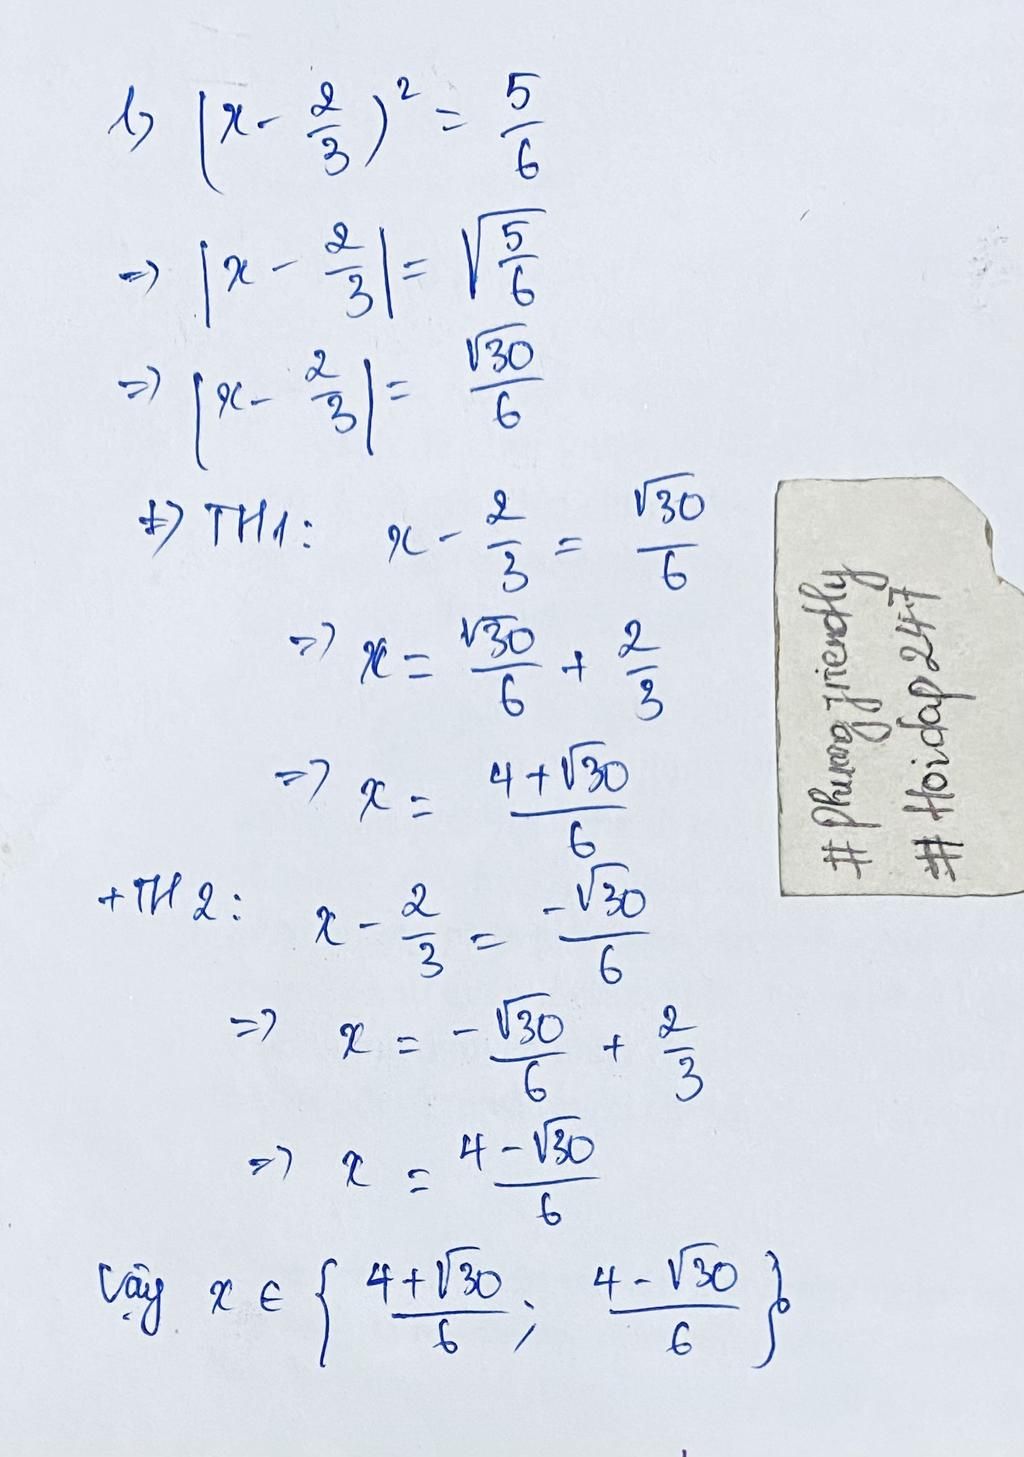 b) (x - 2/3)² = 5/6
=> |x - 2/3| = √(5/6)
=> |x - 2/3| = √30/6
+) TH1: x - 2/3 = √30/6
=> x = √30/6 + 2/3
=> x = (4+√30)/6
+ TH2: x - 2/3 = -√30/6
=> x = -√30/6 + 2/3
=> x = (4-√30)/6
Vậy x ∈ {(4+√30)/6; (4-√30)/6}
#phuongfriendly
#Hoidap247